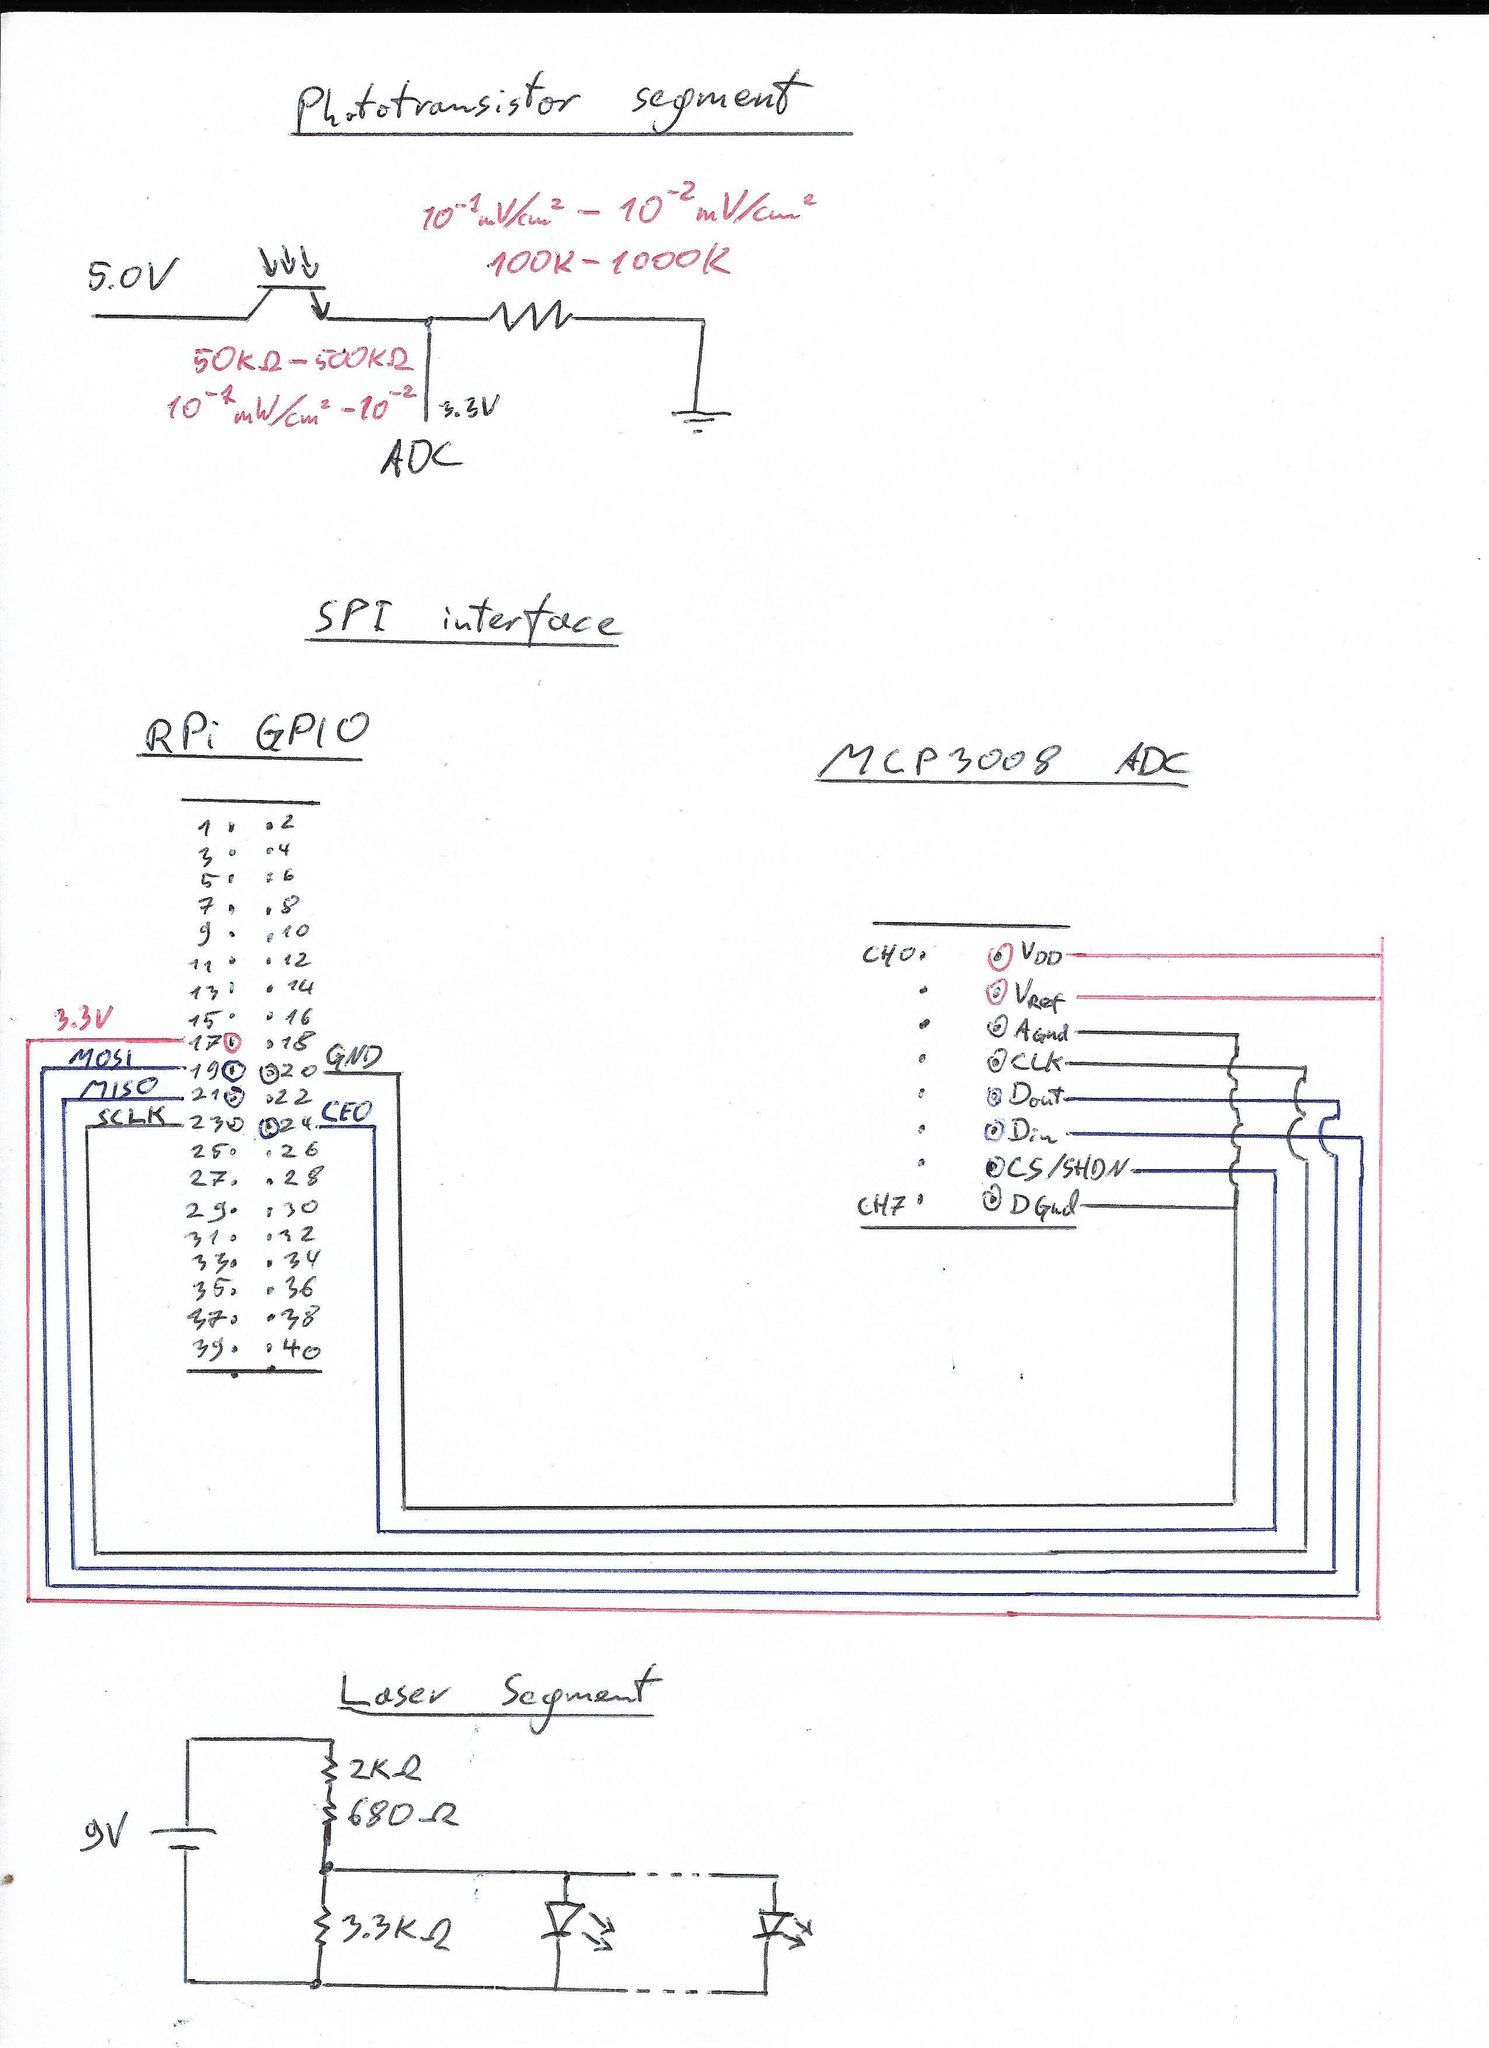 Phototransistor segment
10⁻¹mV/cm² – 10⁻²mV/cm²
100K – 1000K
5.0V
50KΩ – 500KΩ
10⁻¹mW/cm² – 10⁻²
3.3V
ADC
SPI interface
RPi GPIO
MCP3008 ADC
1 2
3 4
5 6
7 8
9 10
11 12
13 14
15 16
3.3V 17 18
MOSI 19 20 GND
MISO 21 22
SCLK 23 24 CE0
25 26
27 28
29 30
31 32
33 34
35 36
37 38
39 40
CH0 VDD
VRef
AGnd
CLK
Dout
Din
CS/SHDN
CH7 DGnd
Laser Segment
2KΩ
680Ω
9V
3.3KΩ